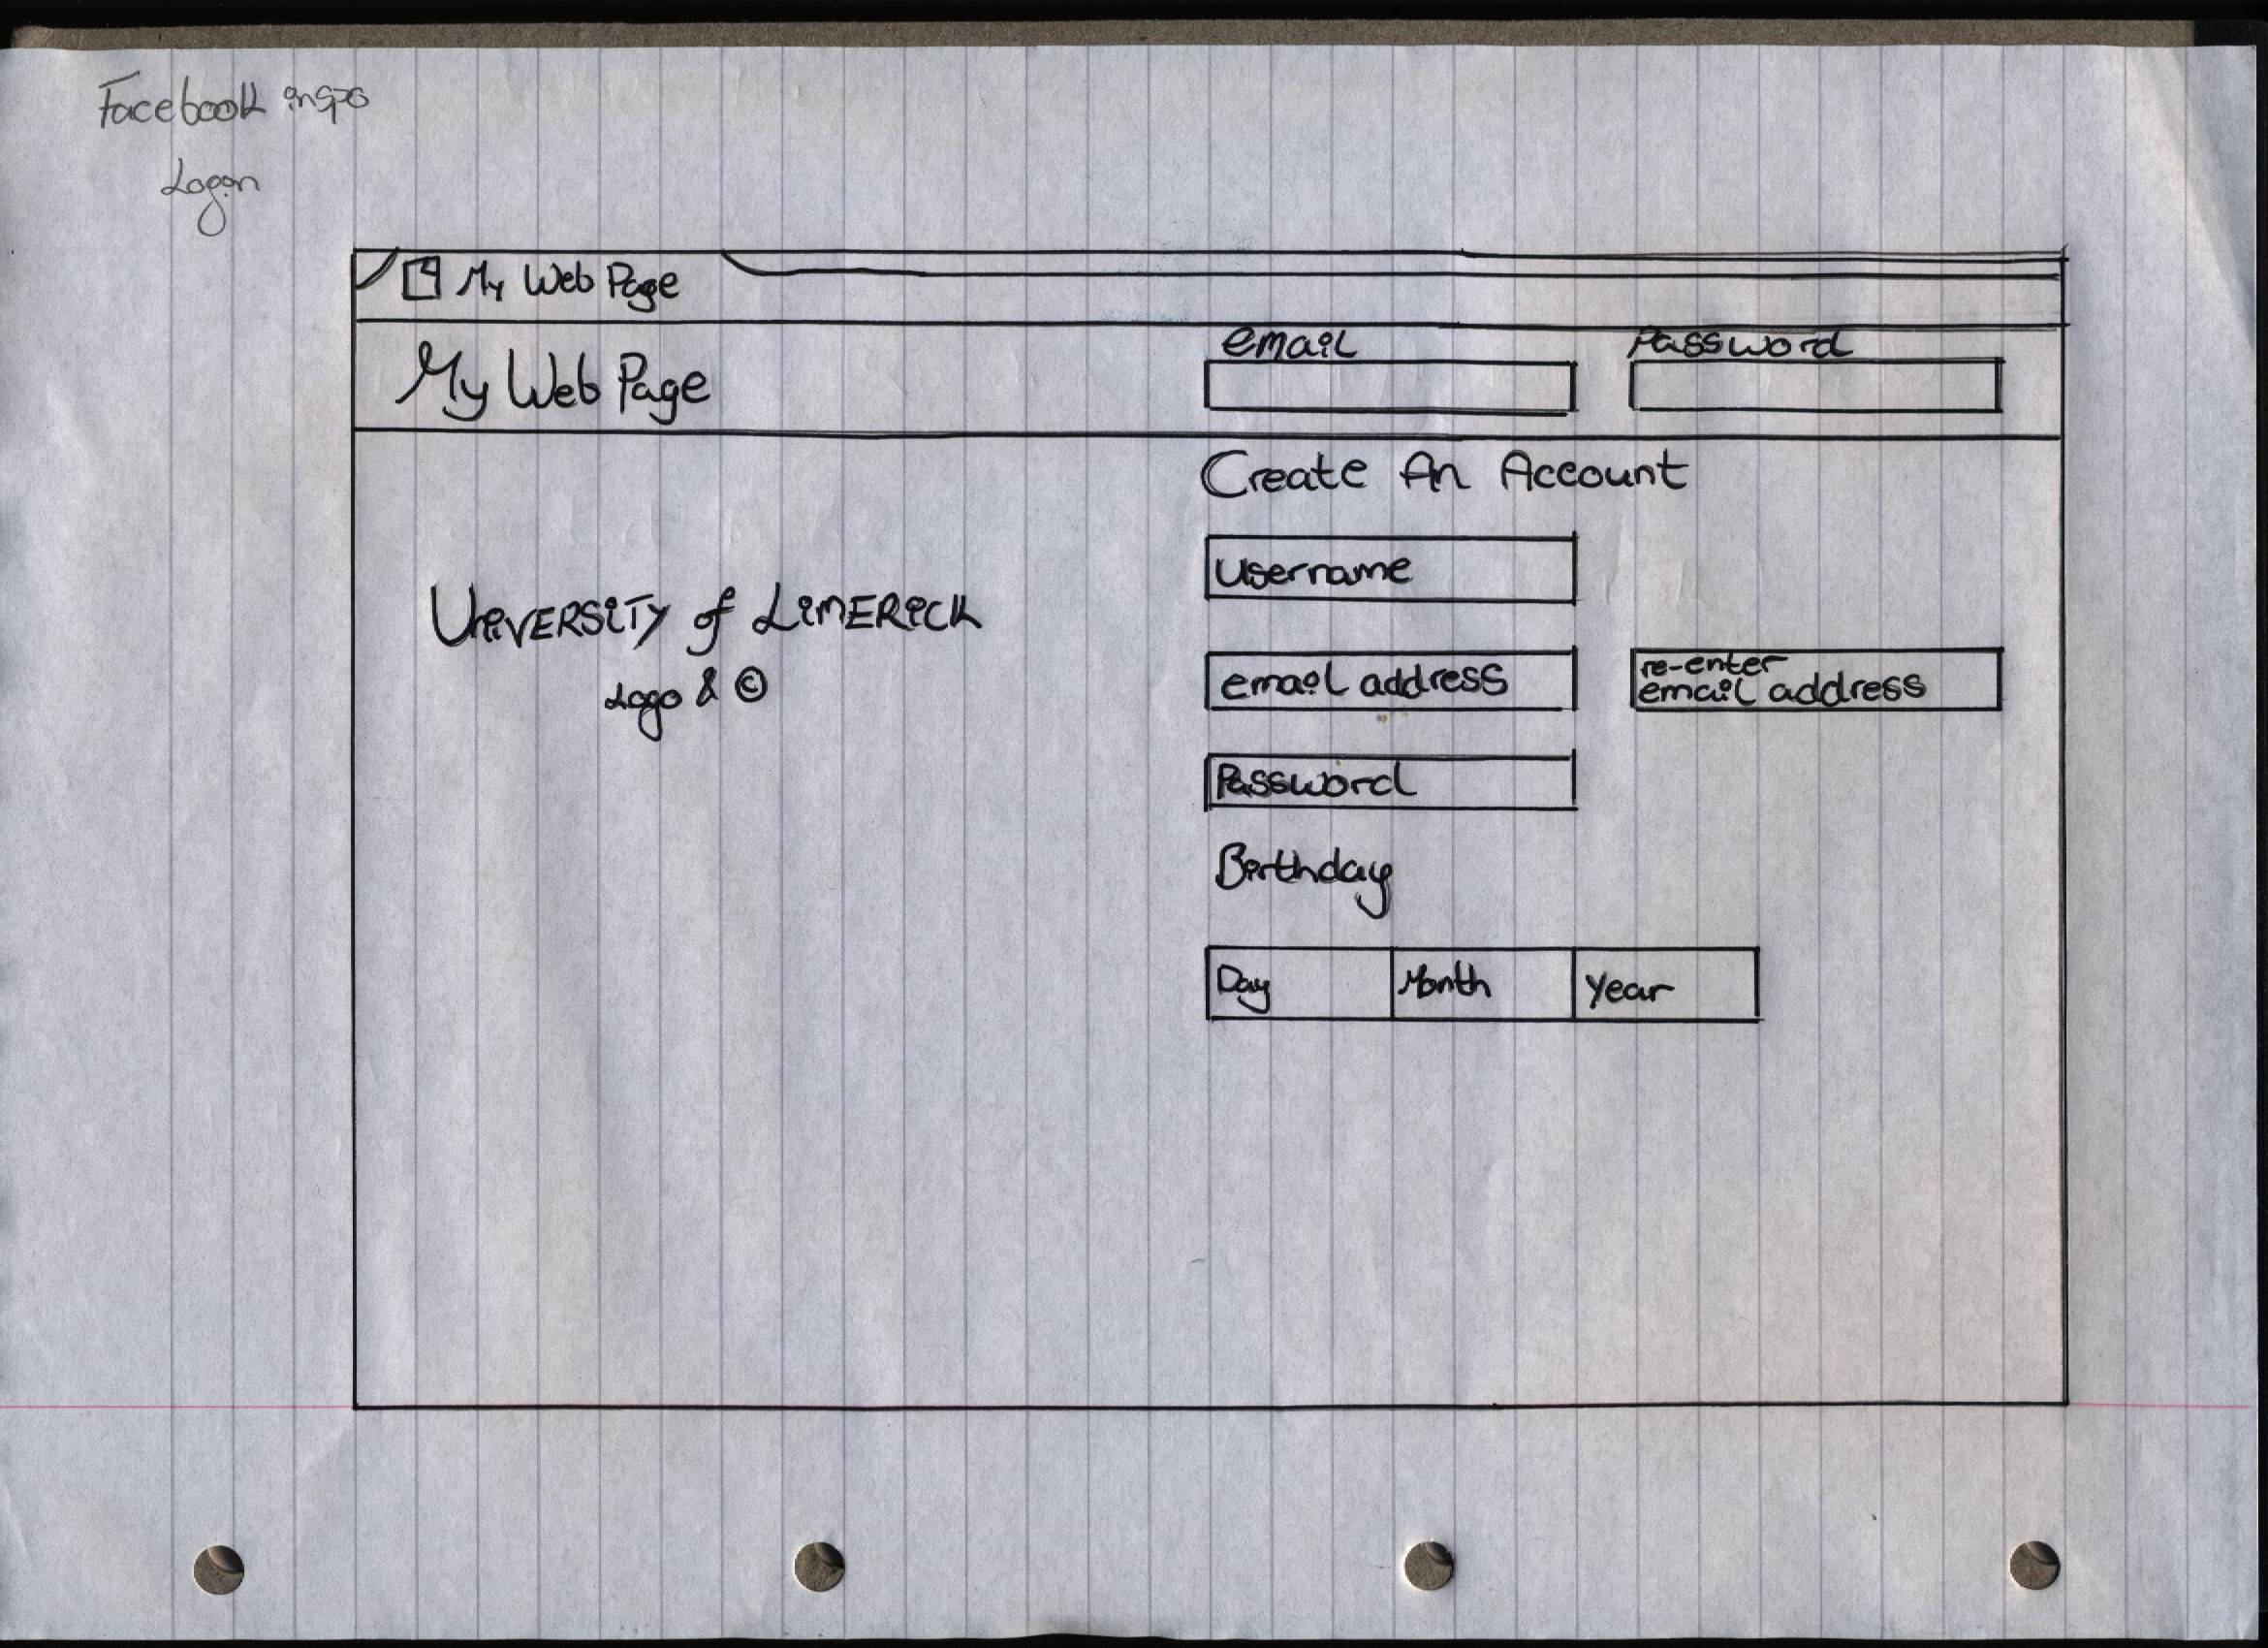 Facebook inspo
Logon
My Web Page
My Web Page
email
Password
Create An Account
Username
University of Limerick
Logo & ©
email address
re-enter
email address
Password
Birthday
Day
Month
Year